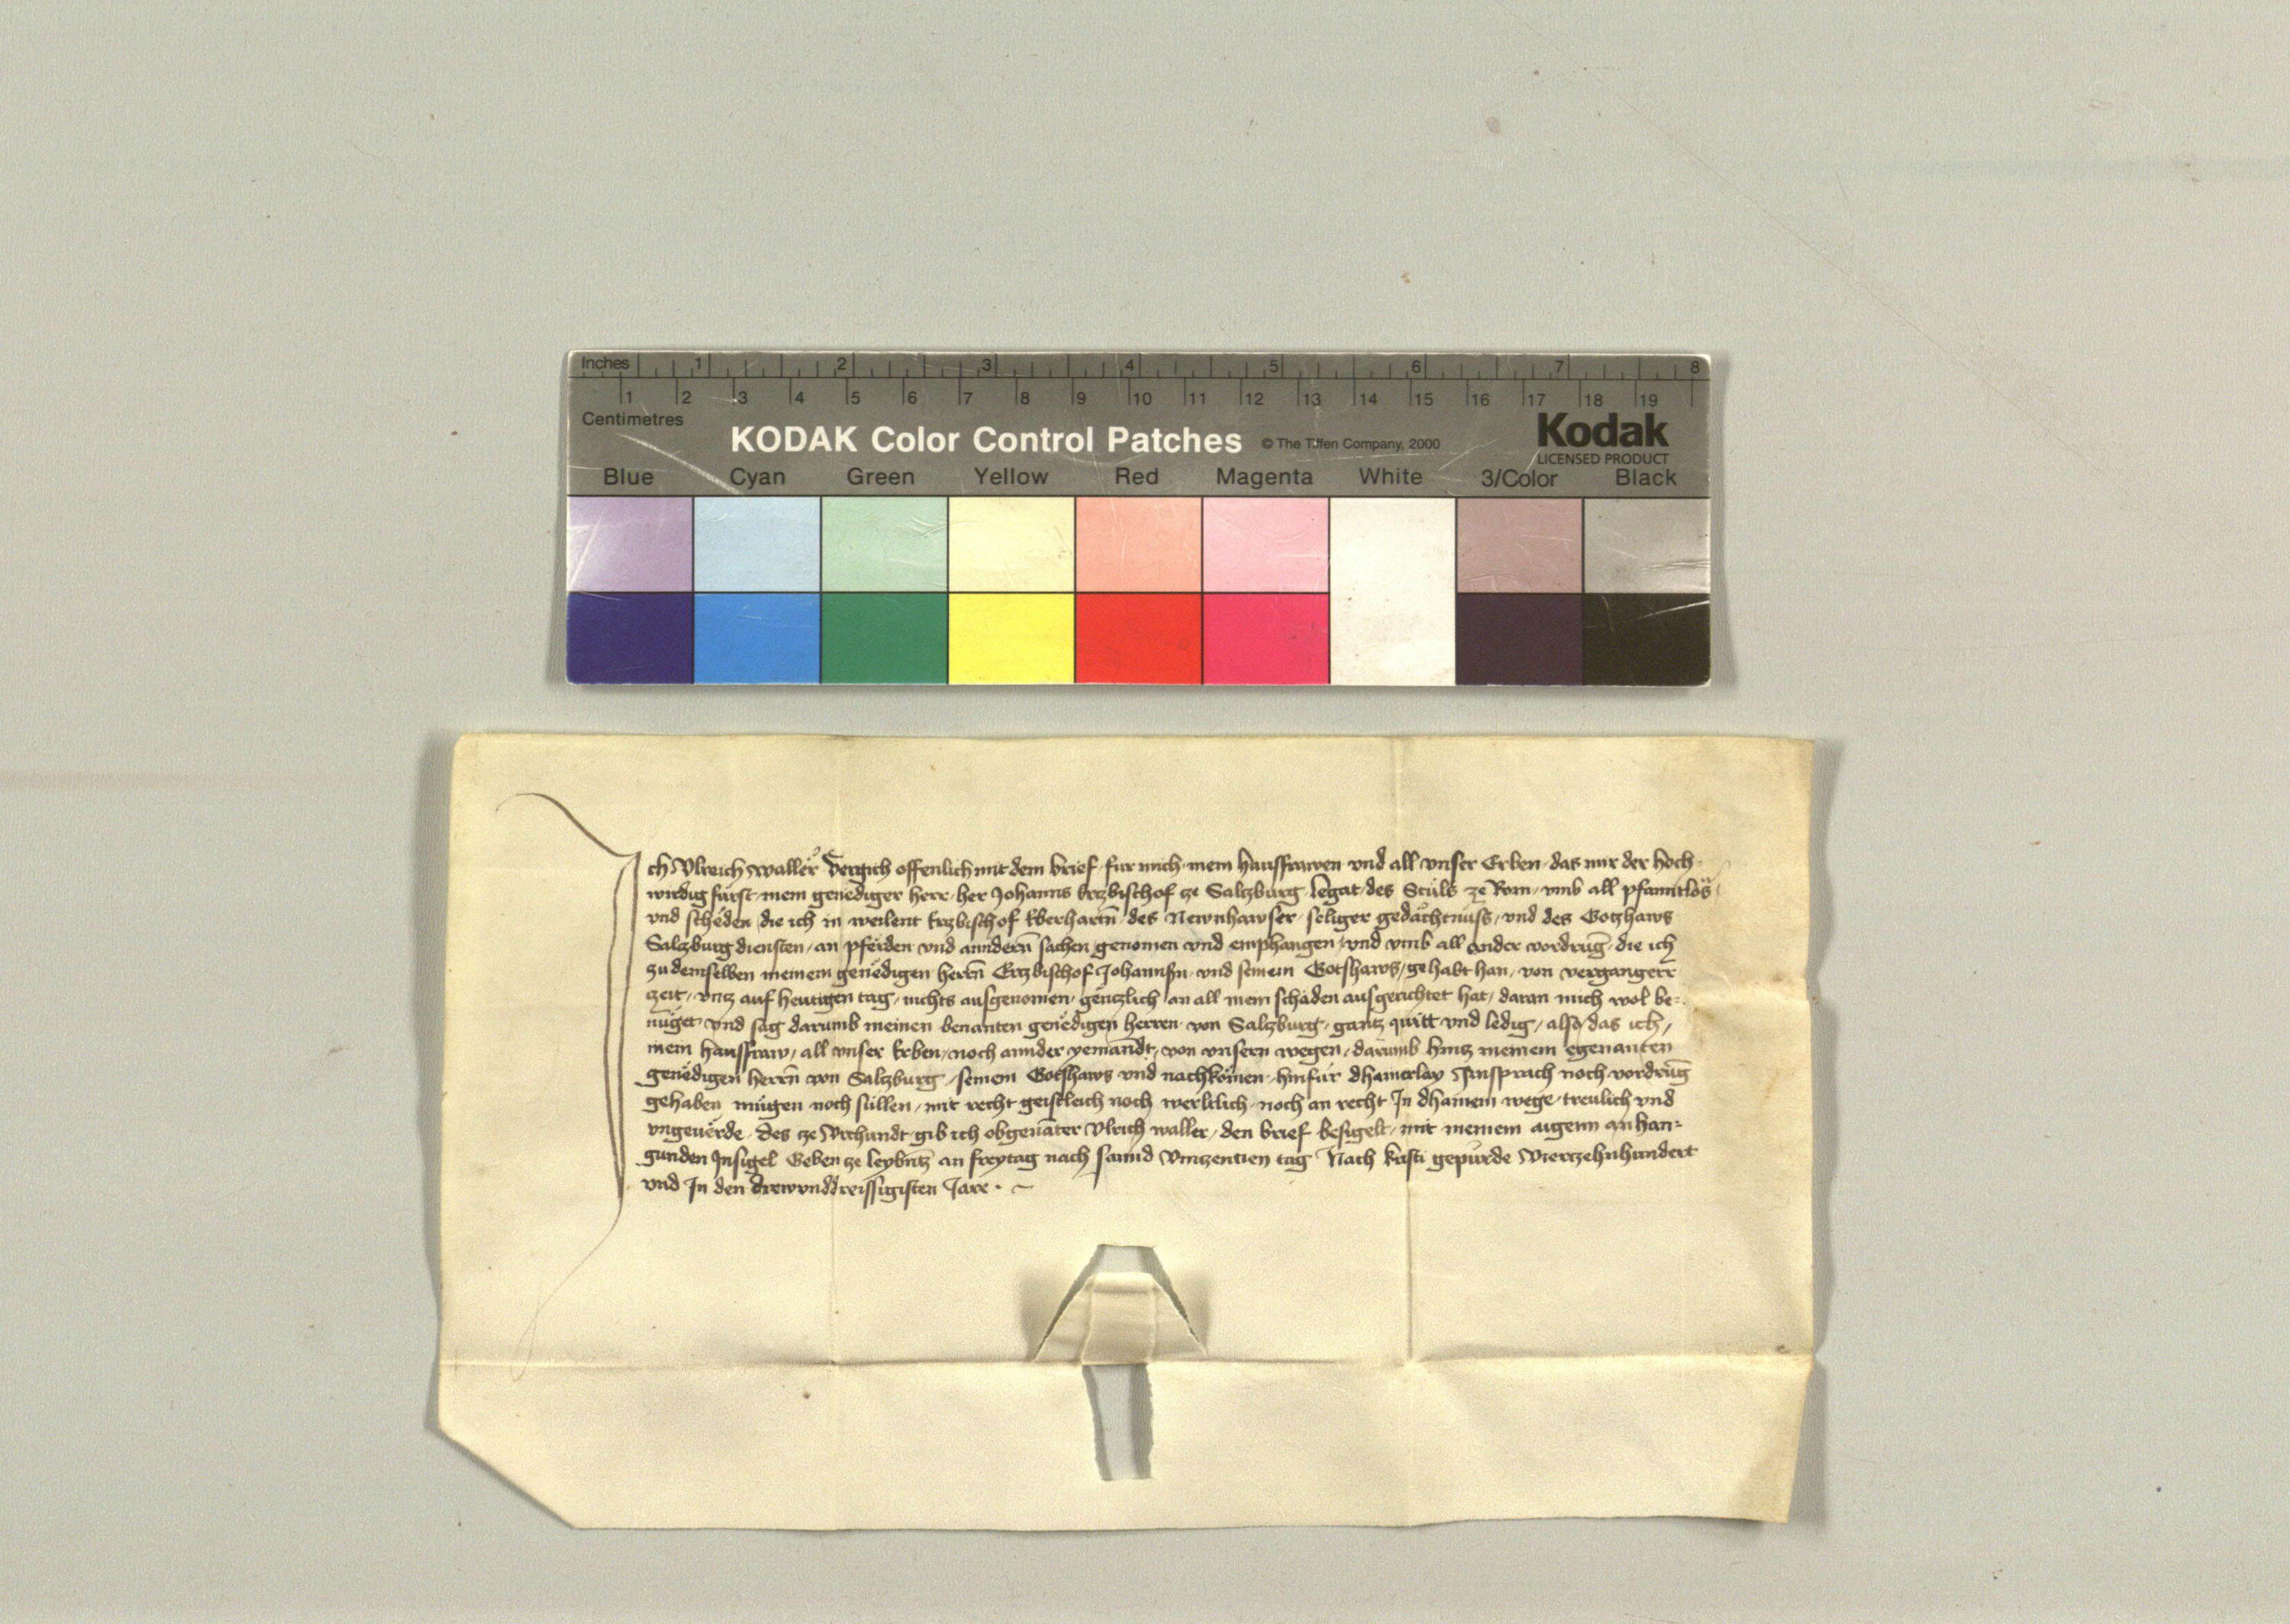 Inches 1 2 3 4 5 6 7 8
1 2 3 4 5 6 7 8 9 10 11 12 13 14 15 16 17 18 19
Centimetres
KODAK Color Control Patches © The Tiffen Company, 2000 Kodak
LICENSED PRODUCT
Blue Cyan Green Yellow Red Magenta White 3/Color Black
Ich Vlreich Waller Vergich offenlich mit dem brief fur mich mein hausfrawen vnd all vnser Erben das mir der hoch
wirdig fürst mein genediger herr her Johanns Erzbischof ze Salzburg legat des Stůls ze Rom vmb all pfanntlös
vnd schëden die ich in weilent Erzbischof Eberhartñ des Newnhawser seliger gedächtnuss vnd des Gotzhaws
Salzburg diensten an pferden vnd anndern̄ sachen genomen vnd emphangen vnd vmb all ander vordruḡ die ich
zu demselben meinem genëdigen herrn̄ Erzbischof Johannsn vnd seinem Gotshaws gehabt han von vergangerr
zeit vnz auf heutigen tag nichts ausgenomen gentzlich an all mein schäden ausgerichtet hat daran mich wol be=
nüget vnd sag darumb meinen benanten genëdigen herren von Salzburg gantz quitt vnd ledig also das ich
mein hausfraw all vnser Erben noch annder yemandt von vnsern wegen darumb hinz meinem egenanten
genëdigen herrn̄ von Salzburg seinem Gotshaws vnd nachkömen hinfür dhainerlay Ansprach noch vordrūg
gehaben mügen noch süllen mit recht geistleich noch werltlich noch an recht In dhainem wege treulich vnd
vngeuërde Des ze Vrchundt gib ich obgenāter Vlrich waller den brief besigelt mit meinem aigenn anhan=
gunden Insigel Geben ze leybnitz an freytag nach sannd Vinzentien tag Nach kristi gepürde Vierzehnhundert
vnd In den drewvnddreissigisten Jare